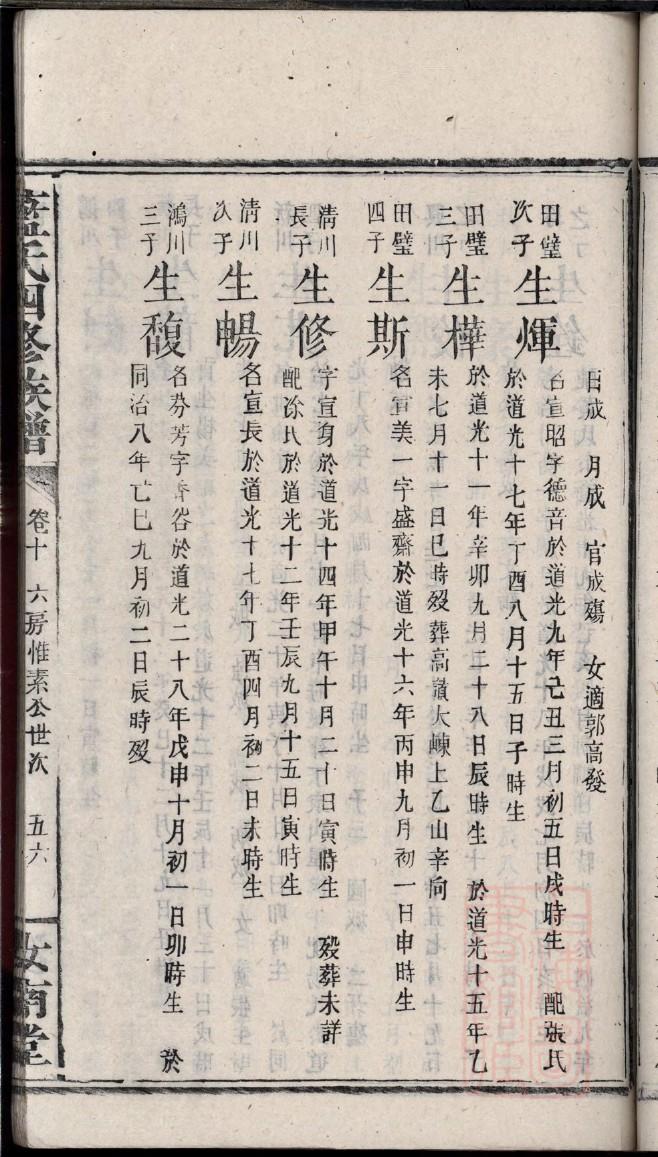 日成　月成　官成殤　女適郭高發
田璧
次子
生煇
名宣昭字德音於道光九年己丑三月初五日戌時生　配張氏
於道光十七年丁酉八月十五日子時生
田璧
三子
生樺
於道光十一年辛卯九月二十八日辰時生　於道光十五年乙
未七月十一日巳時歿葬高嶺大崠上乙山辛向
田璧
四子
生斯
名宣美一字盛齋於道光十六年丙申九月初一日申時生
清川
長子
生修
字宣身於道光十四年甲午十月二十日寅時生　歿葬未詳
配涂氏於道光十二年壬辰九月十五日寅時生
清川
次子
生暢
名宣長於道光十七年丁酉四月初二日未時生
鴻川
三子
生馥
名芬芳字香谷於道光二十八年戊申十月初一日卯時生　於
同治八年亡巳九月初二日辰時歿
氏四修族譜
卷十　六房惟素公世次　五六
汝南堂